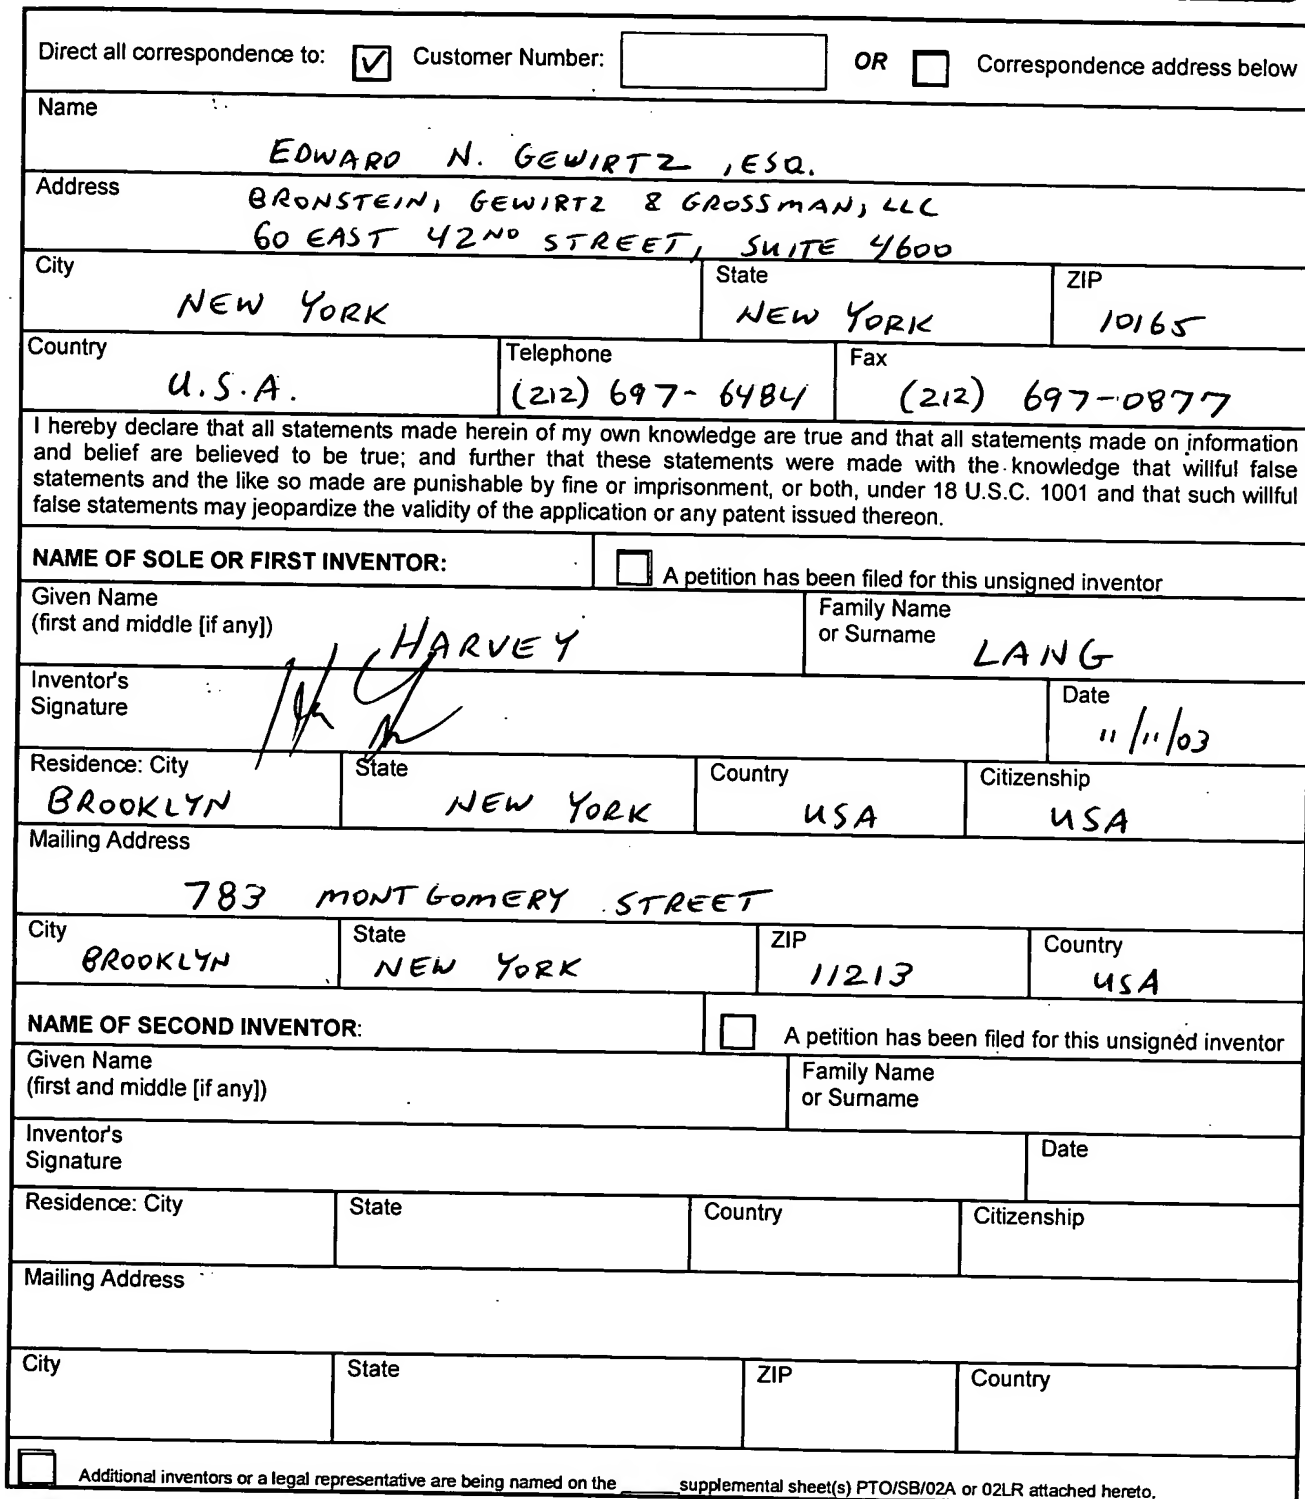 Direct all correspondence to: ☑ Customer Number: OR ☐ Correspondence address below
Name
EDWARD N. GEWIRTZ, ESQ.
Address
BRONSTEIN, GEWIRTZ & GROSSMAN, LLC
60 EAST 42ND STREET, SUITE 4600
City State ZIP
NEW YORK NEW YORK 10165
Country Telephone Fax
U.S.A. (212) 697-6484 (212) 697-0877
I hereby declare that all statements made herein of my own knowledge are true and that all statements made on information
and belief are believed to be true; and further that these statements were made with the knowledge that willful false
statements and the like so made are punishable by fine or imprisonment, or both, under 18 U.S.C. 1001 and that such willful
false statements may jeopardize the validity of the application or any patent issued thereon.
NAME OF SOLE OR FIRST INVENTOR: ☐ A petition has been filed for this unsigned inventor
Given Name Family Name
(first and middle [if any]) or Surname
HARVEY LANG
Inventor's Date
Signature
11/11/03
Residence: City State Country Citizenship
BROOKLYN NEW YORK USA USA
Mailing Address
783 MONTGOMERY STREET
City State ZIP Country
BROOKLYN NEW YORK 11213 USA
NAME OF SECOND INVENTOR: ☐ A petition has been filed for this unsigned inventor
Given Name Family Name
(first and middle [if any]) or Surname
Inventor's Date
Signature
Residence: City State Country Citizenship
Mailing Address
City State ZIP Country
☐ Additional inventors or a legal representative are being named on the ____ supplemental sheet(s) PTO/SB/02A or 02LR attached hereto.